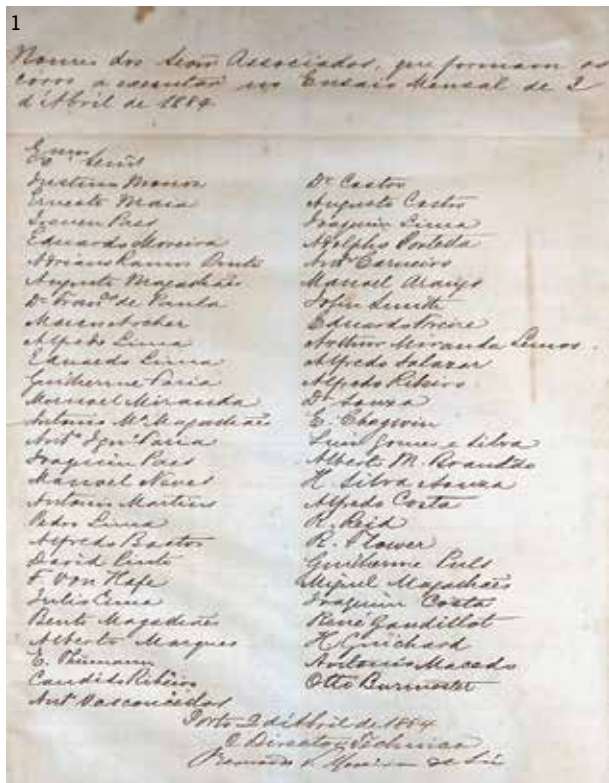 1
Nomes dos Senrs Associados, que formam os
coros a executar no Ensaio Mensal de 2
d'Abril de 1884
Exmos Senrs
Ernesto Maia
Paes
Eduardo Moreira
Adriano Ramos Pinto
Augusto Magalhães
Dr Franco de Paula
Marcos Archer
Alfredo Lima
Eduardo Lima
Guilherme Faria
Manoel Miranda
Antonio Ma Magalhães
Anto Igno Faria
Joaquim Paes
Manoel Neves
Antonio Martins
Pedro Lima
Alfredo Bastos
David Pinto
F. Von Hafe
Julio Lima
Bento Magalhães
Alberto Marques
E. Thümann
Candido Ribeiro
Anto Vasconcellos
Dr Castro
Augusto Castro
Joaquim Lima
Adolpho
Anto Carneiro
Manoel Araujo
John Smith
Eduardo Freire
Arthur Miranda Lemos.
Alfredo Salazar
Alfredo Ribeiro
Dr Souza
E. Chagwin
Luiz Gomes e Silva
Alberto M. Brandão
H. Silva
Alfredo Costa
R. Reid
R. Flower
Guilherme Puls
Miguel Magalhães
Joaquim Costa
René Gandillot
H. Guichard
Antonio Macedo
Otto Burmester
Porto 2 d'Abril de 1884
O Director Technico
Bernardo V. Moreira de Sá